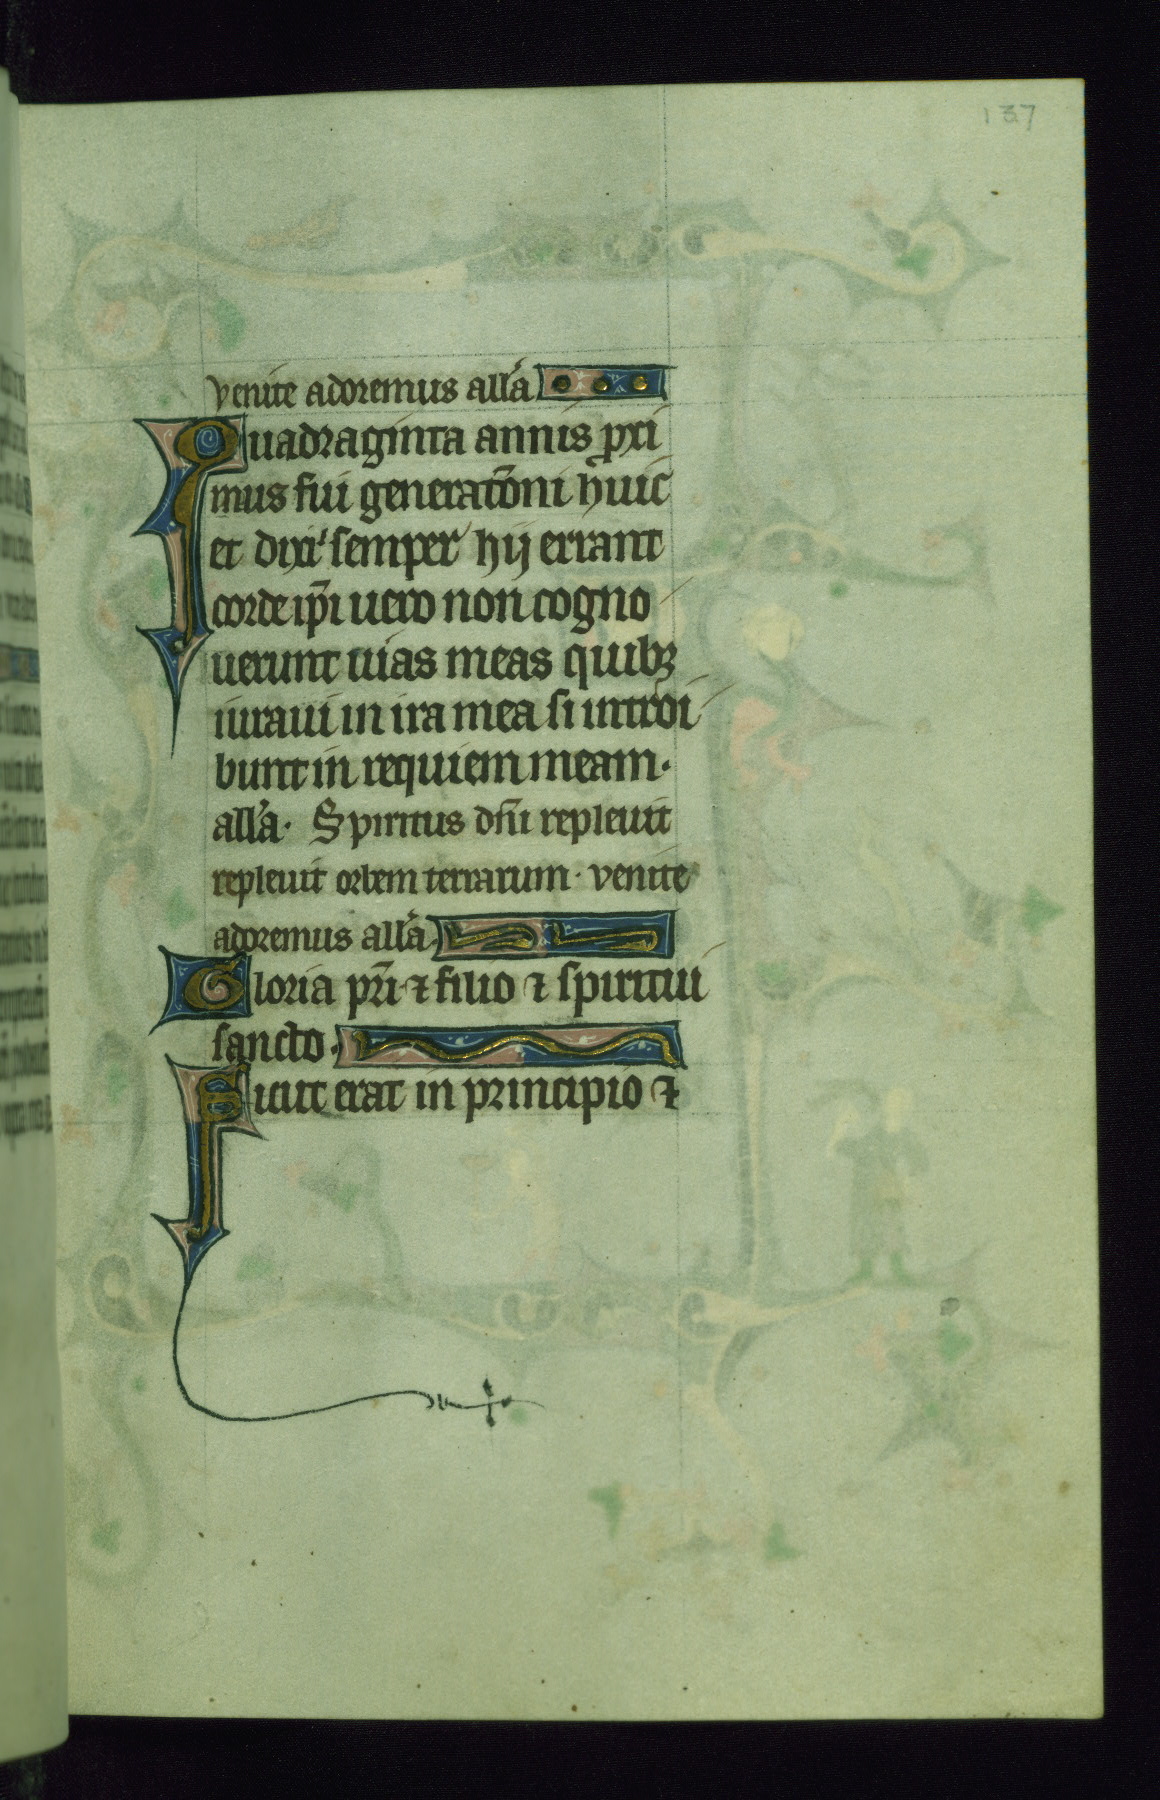 137
venite adoremus all'a
Quadraginta annis p̱xi
mus fui generat̄oni h̄uic
et dixi semper hij errant
corde ip̄i uero non cogno
uerunt uias meas quibꝫ
iuraui in ira mea si introi
bunt in requiem meam·
all'a· Spiritus dn̄i repleuit
repleuit orbem terrarum· venite
adoremus all'a·
Gloria pr̄i ⁊ filio ⁊ spiritui
sancto·
Sicut erat in principio ⁊